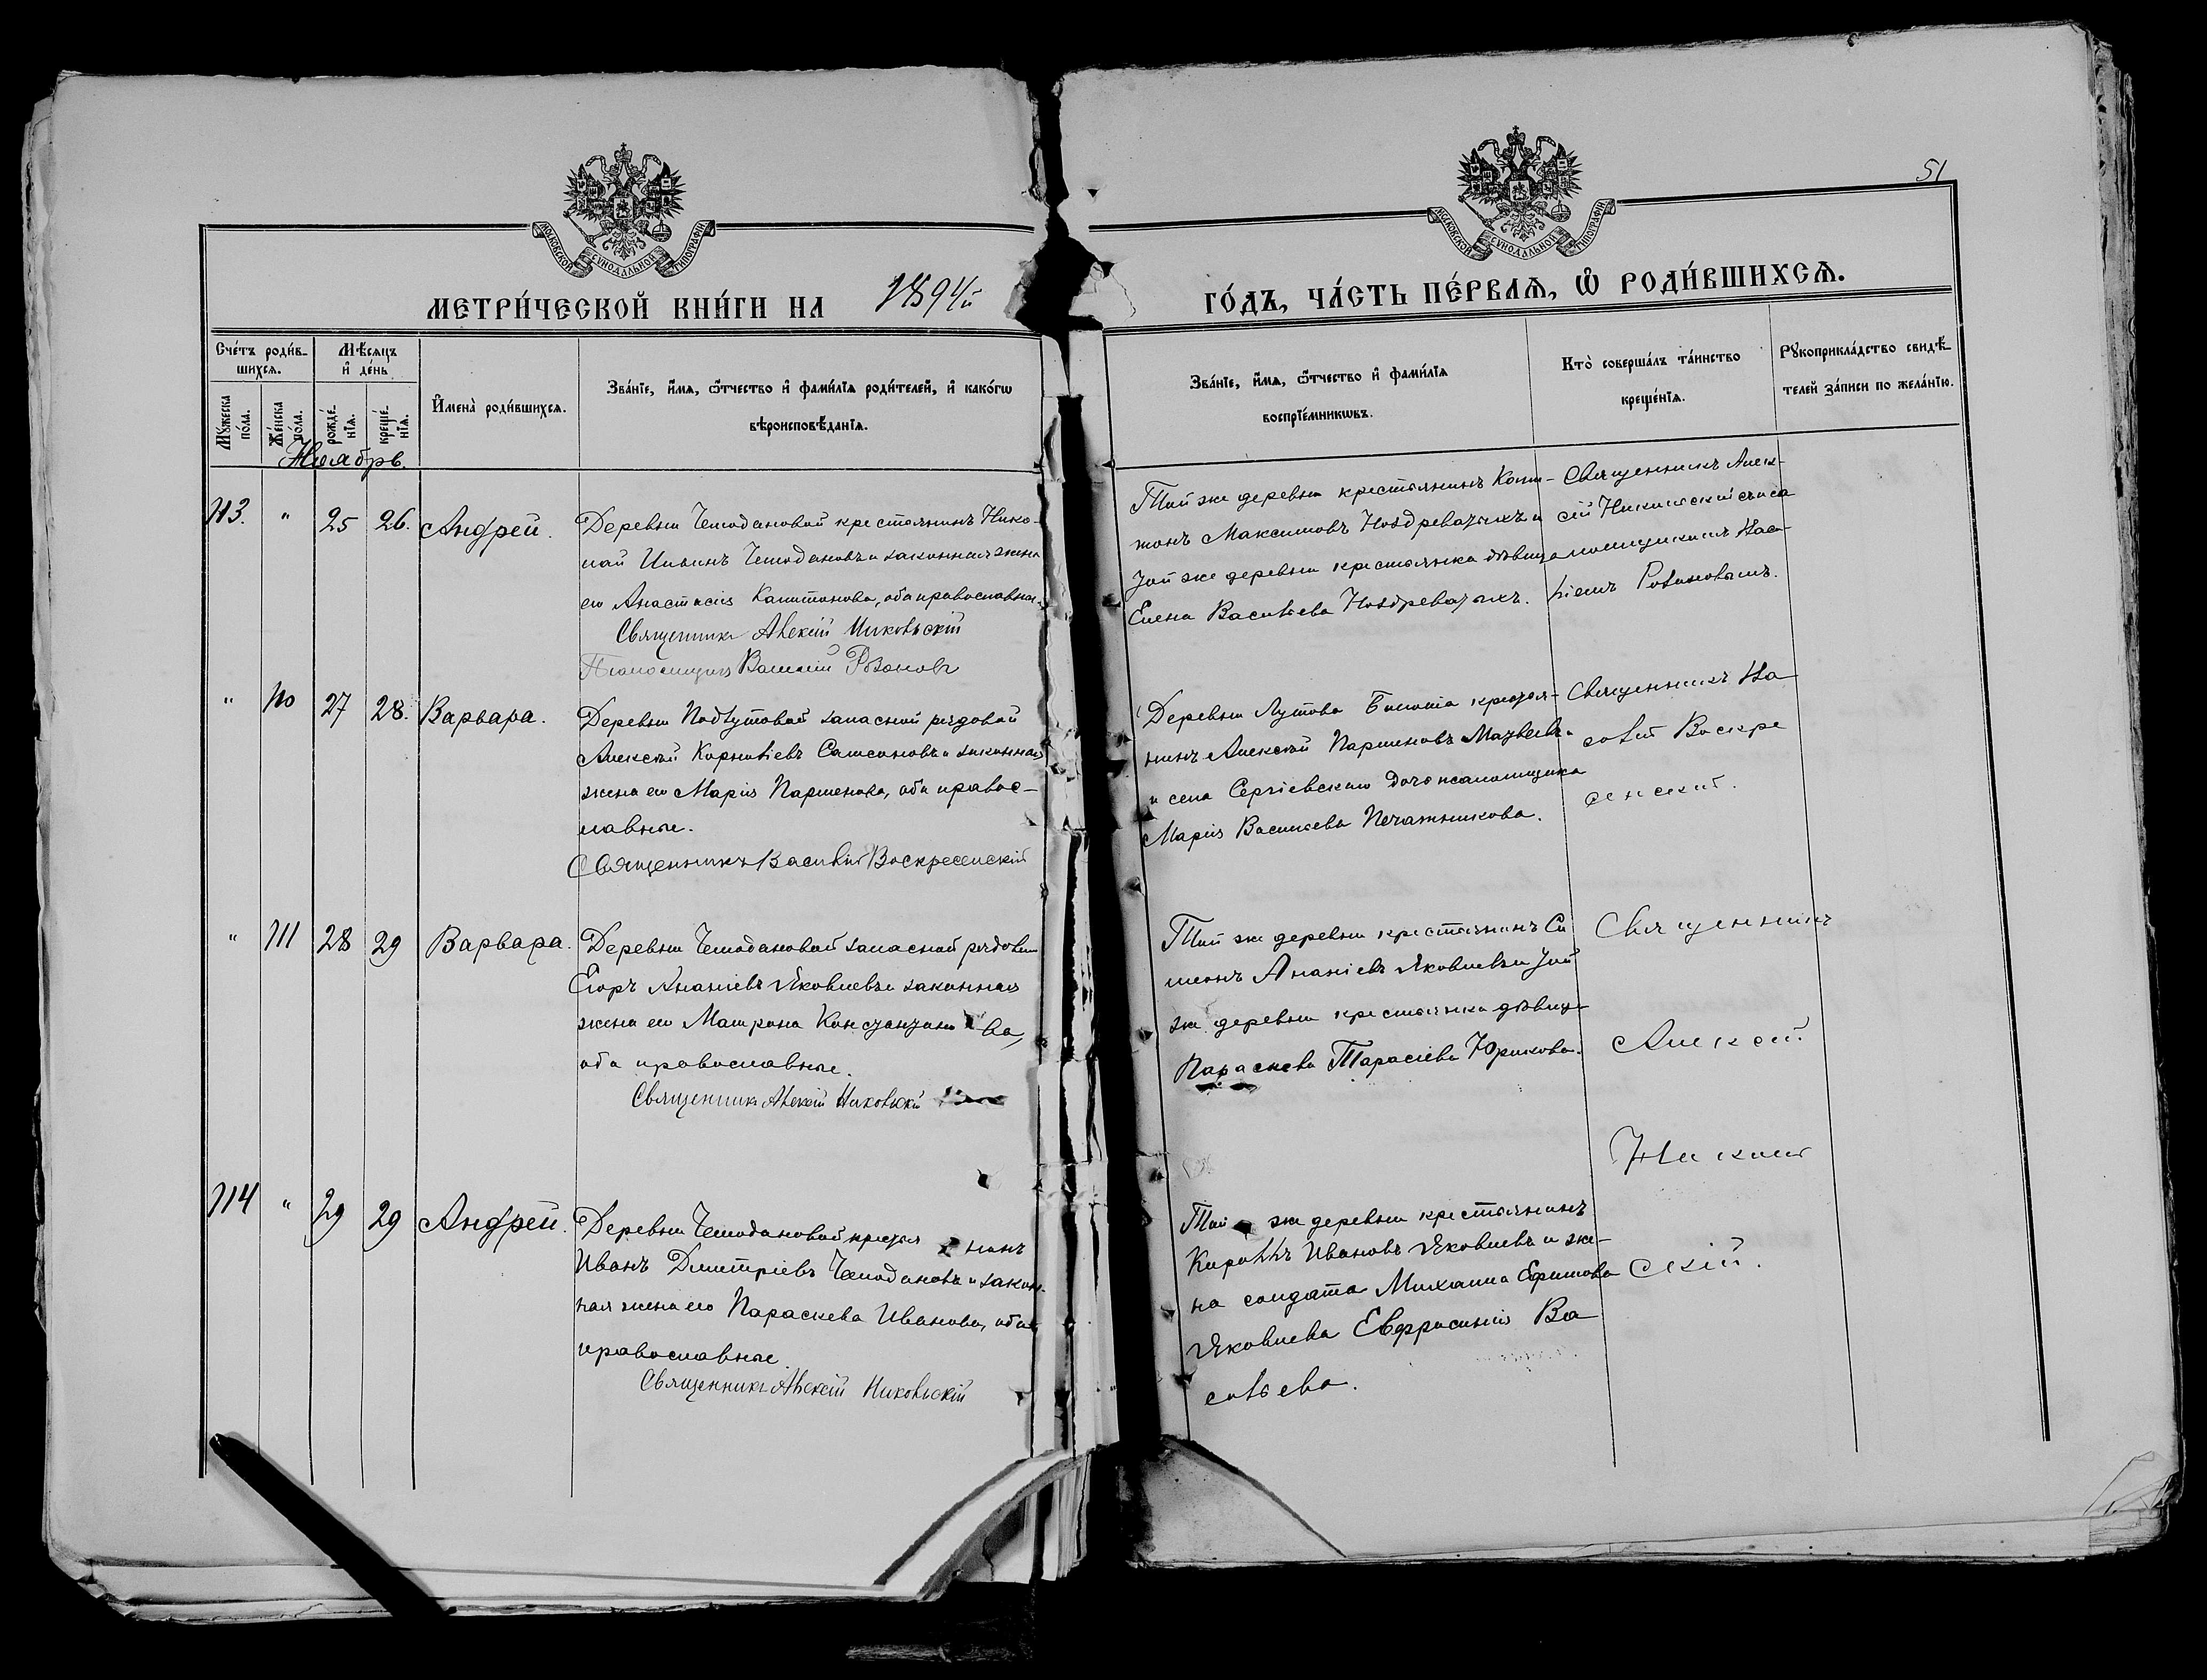 51
МОСКОВСКОЙ СУНОДАЛЬНОЙ ТИПОГРАФІИ
МОСКОВСКОЙ СУНОДАЛЬНОЙ ТИПОГРАФІИ
МЕТРИ́ЧЕСКОЙ КНИ́ГИ НА 1894й
ГО́ДЪ, ЧА́СТЬ ПЕ́РВАѦ, Ѽ РОДИ́ВШИХСѦ.
Сче́тъ роди́в-
шихсѧ.
Мѣ́сѧцъ
и҆ де́нь
Мꙋ́жеска
по́ла.
Же́нска
по́ла.
рожде́-
нїѧ.
креще́-
нїѧ.
И҆мена̀ роди́вшихсѧ.
Зва́нїе, и҆́мѧ, ѻ҆́тчество и҆ фами́лїѧ роди́телей, и҆ како́гѡ
вѣроисповѣ́данїѧ.
Зва́нїе, и҆́мѧ, ѻ҆́тчество и҆ фами́лїѧ
воспрїе́мникѡвъ.
Кто̀ соверша́лъ та́инство
креще́нїѧ.
Рꙋкоприкла́дство свидѣ́-
телей за́писи по жела́нїю.
Ноябрь.
113. " 25 26. Андрей.
Деревни Чемодановой крестьянинъ Нико-
лай Ильинъ Чемодановъ и законная жена
его Анастасія Капитонова, оба православные.
Священникъ Алексій Никольскій
Псаломщикъ Василій Розановъ
Той же деревни крестьянинъ Капи-
тонъ Максимовъ Ноздреватыхъ и
той же деревни крестьянка дѣвица
Елена Васильева Ноздреватыхъ.
Священникъ Алек-
сій Никольскій съ пса
ломщикомъ Васи-
ліемъ Розановымъ.
" 110 27 28. Варвара.
Деревни запасной рядовой
Алексѣй Корниліевъ Самсоновъ и законная
жена его Марія Парменова, оба правос-
лавные.
Священникъ Василій Воскресенскій
Деревни Лутова крестья-
нинъ Алексѣй Парменовъ Матвеевъ
и села Сергіевскаго дочь псаломщика
Марія Васильева Печатникова.
Священникъ Ва
силій Воскре
сенскій.
" 111 28 29 Варвара.
Деревни Чемодановой запасной рядовый
Егоръ Ананіевъ Яковлевъ и законная
жена его Матрона Константинова,
оба православные.
Священникъ Алексій Никольскій
Той же деревни крестьянинъ Си
меонъ Ананіевъ Яковлевъ и той
же деревни крестьянка дѣвица
Параскева Тарасіева Юрикова.
Священникъ
Алексѣй
Николь
скій.
114 " 29 29 Андрей.
Деревни Чемодановой крестьянинъ
Иванъ Димитріевъ Чемодановъ и закон-
ная жена его Параскева Иванова, оба
православные.
Священникъ Алексій Никольскій
Той же деревни крестьянинъ
Кириллъ Ивановъ Яковлевъ и же-
на солдата Михаила Ефимова
Яковлева Евфросинія Ва
сильева.